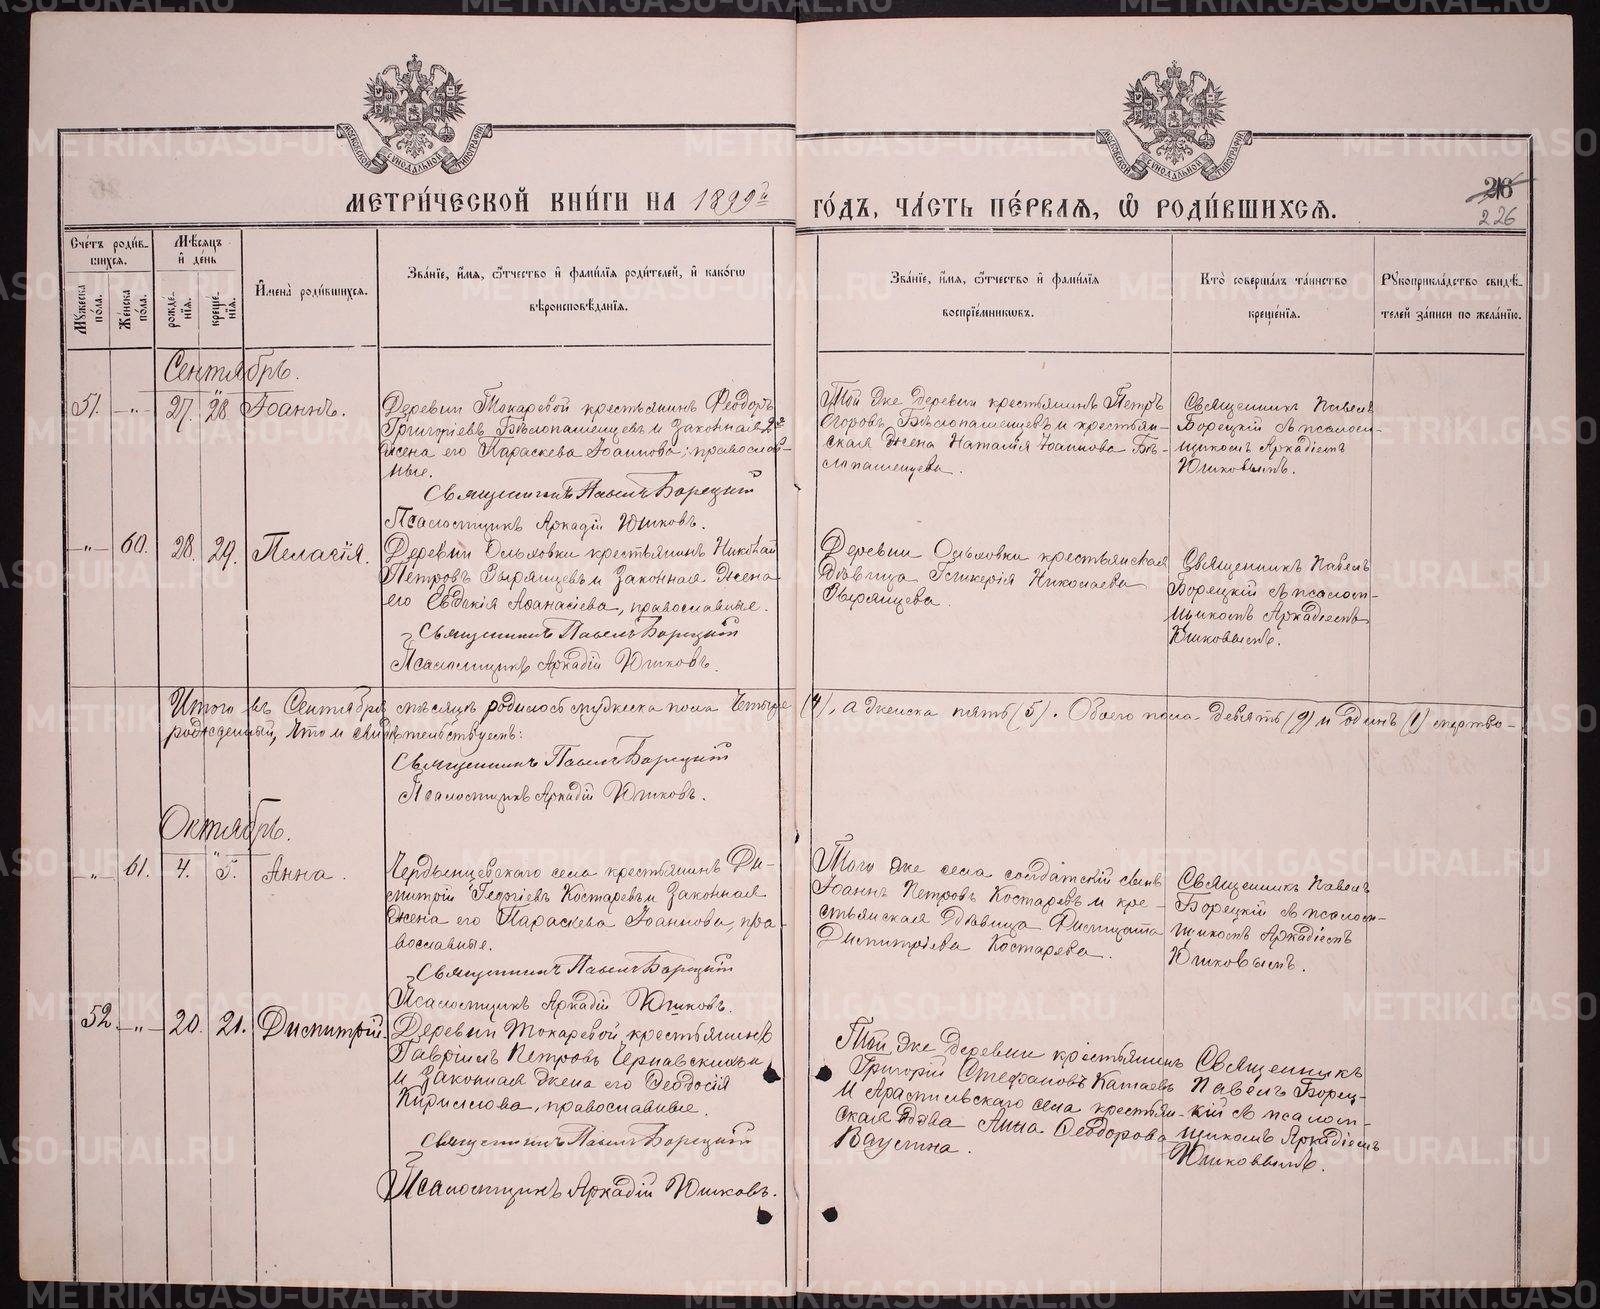 МЕТРИ́ЧЕСКОЙ КНИ́ГИ НА 1899й
ГО́ДЪ, ЧА́СТЬ ПЕ́РВАѦ, Ѡ҆ РОДИ́ВШИХСѦ.
226
Сче́тъ роди́в-
шихсѧ.
Мꙋ́жеска по́ла.
Же́нска по́ла.
Мѣ́сѧцъ и҆ де́нь
рожде́-
нїѧ.
креще́-
нїѧ.
И҆мена̀ роди́вшихсѧ.
Зва́нїе, и҆́мѧ, ѻ҆́тчество и҆ фами́лїѧ роди́телей, и҆ како́гѡ
вѣроисповѣ́данїѧ.
Зва́нїе, и҆́мѧ, ѻ҆́тчество и҆ фами́лїѧ
воспрїе́мникѡвъ.
Кто̀ соверша́лъ та́инство
креще́нїѧ.
Рꙋкоприкла́дство свидѣ́-
телей за́писи по жела́нїю.
Сентябрь.
51. —"— 27. 28 Іоаннъ.
Деревни Токаревой крестьянинъ Ѳеодоръ
Григоріевъ Бѣлопашенцевъ и законная
жена его Параскева Іоаннова; православ-
ные.
Священникъ Павелъ Борецкій
Псаломщикъ Аркадій Юшковъ.
Той же деревни крестьянинъ Петръ
Егоровъ Бѣлопашенцевъ и крестьян-
ская жена Наталія Іоаннова Бѣ-
лопашенцева.
Священникъ Павелъ
Борецкій съ псалом-
щикомъ Аркадіемъ
Юшковымъ.
—"— 60. 28. 29. Пелагія.
Деревни Ольховки крестьянинъ Николай
Петровъ Зырянцевъ и законная жена
его Евдокія Аѳанасіева, православные.
Священникъ Павелъ Борецкій
Псаломщикъ Аркадій Юшковъ.
Деревни Ольховки крестьянская
дѣвица Гликерія Николаева
Зырянцева.
Священникъ Павелъ
Борецкій съ псалом-
щикомъ Аркадіемъ
Юшковымъ.
Итого въ Сентябрѣ мѣсяцѣ родилось мужеска пола четыре (4), а женска пять (5). Обоего пола девять (9) и одинъ (1) мертво-
рожденный, что и свидѣтельствуемъ:
Священникъ Павелъ Борецкій
Псаломщикъ Аркадій Юшковъ.
Октябрь.
—"— 61. 4. 5. Анна.
Чердынцевскаго села крестьянинъ Ди-
митрій Георгіевъ Костаревъ и законная
жена его Параскева Іоаннова, пра-
вославные.
Священникъ Павелъ Борецкій
Псаломщикъ Аркадій Юшковъ.
Того же села солдатскій сынъ
Іоаннъ Петровъ Костаревъ и кре-
стьянская дѣвица Филицата
Димитріева Костарева.
Священникъ Павелъ
Борецкій съ псалом-
щикомъ Аркадіемъ
Юшковымъ.
52. —"— 20. 21. Димитрій.
Деревни Токаревой крестьянинъ
Гавріилъ Петровъ Чернавскихъ и
и законная жена его Ѳеодосія
Кириллова, православные.
Священникъ Павелъ Борецкій
Псаломщикъ Аркадій Юшковъ.
Той же деревни крестьянинъ
Григорій Стефановъ Катаевъ
и Арамильскаго села крестьян-
ская вдова Анна Ѳеодорова
Ваулина.
Священникъ
Павелъ Борец-
кій съ псалом-
щикомъ Аркадіемъ
Юшковымъ.
METRIKI.GASO-URAL.RU